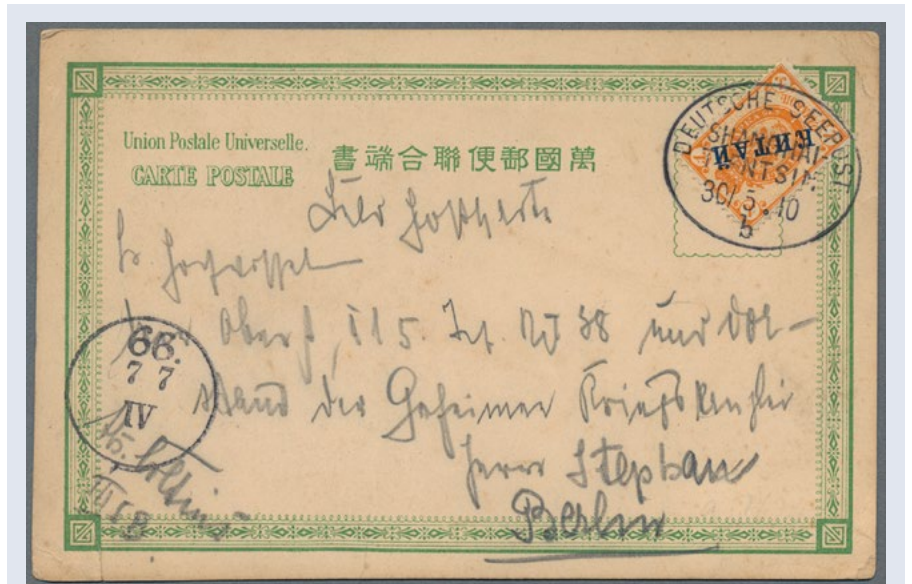 Union Postale Universelle.
CARTE POSTALE
萬國郵便聯合端書
DEUTSCHE SEEPOST
SHANGHAI-
TIENTSIN
30/5.10
b
КИТАЙ
Feldpostkarte
Oberst, 38 und Vor-
stand der Geheimen Kriegskanzlei
Herrn Stephan
Berlin
66.
7 7
IV